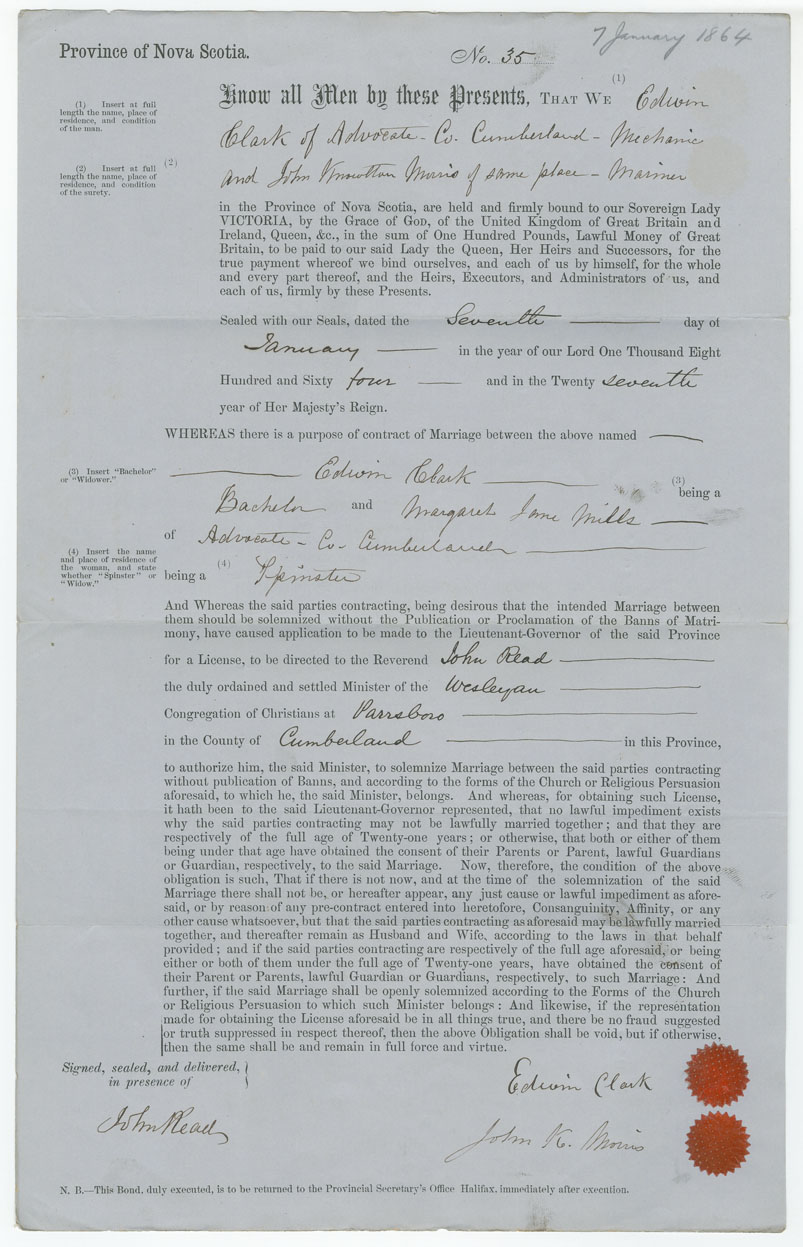 7 January 1864
Province of Nova Scotia.
No. 35
Know all Men by these Presents, THAT WE (1) Edwin
(1) Insert at full
length the name, place of
residence, and condition
of the man.
Clark of Advocate - Co. Cumberland - Mechanic
(2) Insert at full
length the name, place of
residence, and condition
of the surety.
(2)
and John Knowlton Morris of same place - Mariner
in the Province of Nova Scotia, are held and firmly bound to our Sovereign Lady
VICTORIA, by the Grace of GOD, of the United Kingdom of Great Britain and
Ireland, Queen, &c., in the sum of One Hundred Pounds, Lawful Money of Great
Britain, to be paid to our said Lady the Queen, Her Heirs and Successors, for the
true payment whereof we bind ourselves, and each of us by himself, for the whole
and every part thereof, and the Heirs, Executors, and Administrators of us, and
each of us, firmly by these Presents.
Sealed with our Seals, dated the Seventh day of
January in the year of our Lord One Thousand Eight
Hundred and Sixty four and in the Twenty seventh
year of Her Majesty's Reign.
WHEREAS there is a purpose of contract of Marriage between the above named
(3) Insert "Bachelor"
or "Widower."
Edwin Clark (3) being a
Bachelor and Margaret Jane Mills
of Advocate - Co. Cumberland
(4) Insert the name
and place of residence of
the woman, and state
whether "Spinster" or
"Widow."
being a (4) Spinster
And Whereas the said parties contracting, being desirous that the intended Marriage between
them should be solemnized without the Publication or Proclamation of the Banns of Matri-
mony, have caused application to be made to the Lieutenant-Governor of the said Province
for a License, to be directed to the Reverend John Read
the duly ordained and settled Minister of the Wesleyan
Congregation of Christians at Parrsboro
in the County of Cumberland in this Province,
to authorize him, the said Minister, to solemnize Marriage between the said parties contracting
without publication of Banns, and according to the forms of the Church or Religious Persuasion
aforesaid, to which he, the said Minister, belongs. And whereas, for obtaining such License,
it hath been to the said Lieutenant-Governor represented, that no lawful impediment exists
why the said parties contracting may not be lawfully married together; and that they are
respectively of the full age of Twenty-one years; or otherwise, that both or either of them
being under that age have obtained the consent of their Parents or Parent, lawful Guardians
or Guardian, respectively, to the said Marriage. Now, therefore, the condition of the above
obligation is such, That if there is not now, and at the time of the solemnization of the said
Marriage there shall not be, or hereafter appear, any just cause or lawful impediment as afore-
said, or by reason of any pre-contract entered into heretofore, Consanguinity, Affinity, or any
other cause whatsoever, but that the said parties contracting as aforesaid may be lawfully married
together, and thereafter remain as Husband and Wife, according to the laws in that behalf
provided; and if the said parties contracting are respectively of the full age aforesaid, or being
either or both of them under the full age of Twenty-one years, have obtained the consent of
their Parent or Parents, lawful Guardian or Guardians, respectively, to such Marriage: And
further, if the said Marriage shall be openly solemnized according to the Forms of the Church
or Religious Persuasion to which such Minister belongs: And likewise, if the representation
made for obtaining the License aforesaid be in all things true, and there be no fraud suggested
or truth suppressed in respect thereof, then the above Obligation shall be void, but if otherwise,
then the same shall be and remain in full force and virtue.
Signed, sealed, and delivered,
in presence of
Edwin Clark
John Read
John K. Morris
N. B.—This Bond, duly executed, is to be returned to the Provincial Secretary's Office Halifax, immediately after execution.